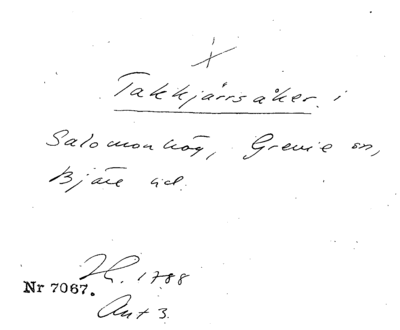 X
Takkjärrsåker i
Salomonhög, Grevie sn,
Bjäre hd.
H. 1788
Nr 7067.
Ant 3.